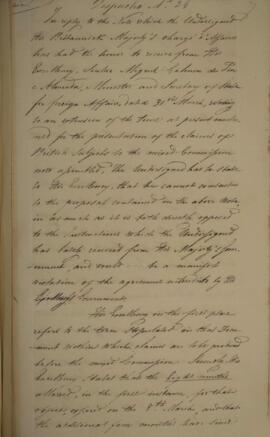 Despacho Nº 26
In reply to the Note which the Undersigned
His Britannick Majesty's Chargé d'Affaires
has had the honor to receive from His
Excellency, Senhor Miguel Calmon du Pin
e Almeida, Minister and Secretary of State
for foreign Affairs, dated 31st March, relating
to an extension of the time at present
for the presentation of the claims of
British Subjects to the mixed Commission
now appointed, The Undersigned has to state
to His Excellency, that he cannot consent
to the proposal contained in the above Note,
in as much as it is both directly opposed
to the instructions which the Undersigned
has lately received from His Majesty's Gov-
ernment, and would be a manifest
violation of the agreement
Government
His Excellency in the first place
refers to the term stipulated in that
within which claims are to be
before the mixed Commission
Excellency, states that the eight months
allowed, in the first instance, for that
object, expired on the 8th March, and that
the additional four months has